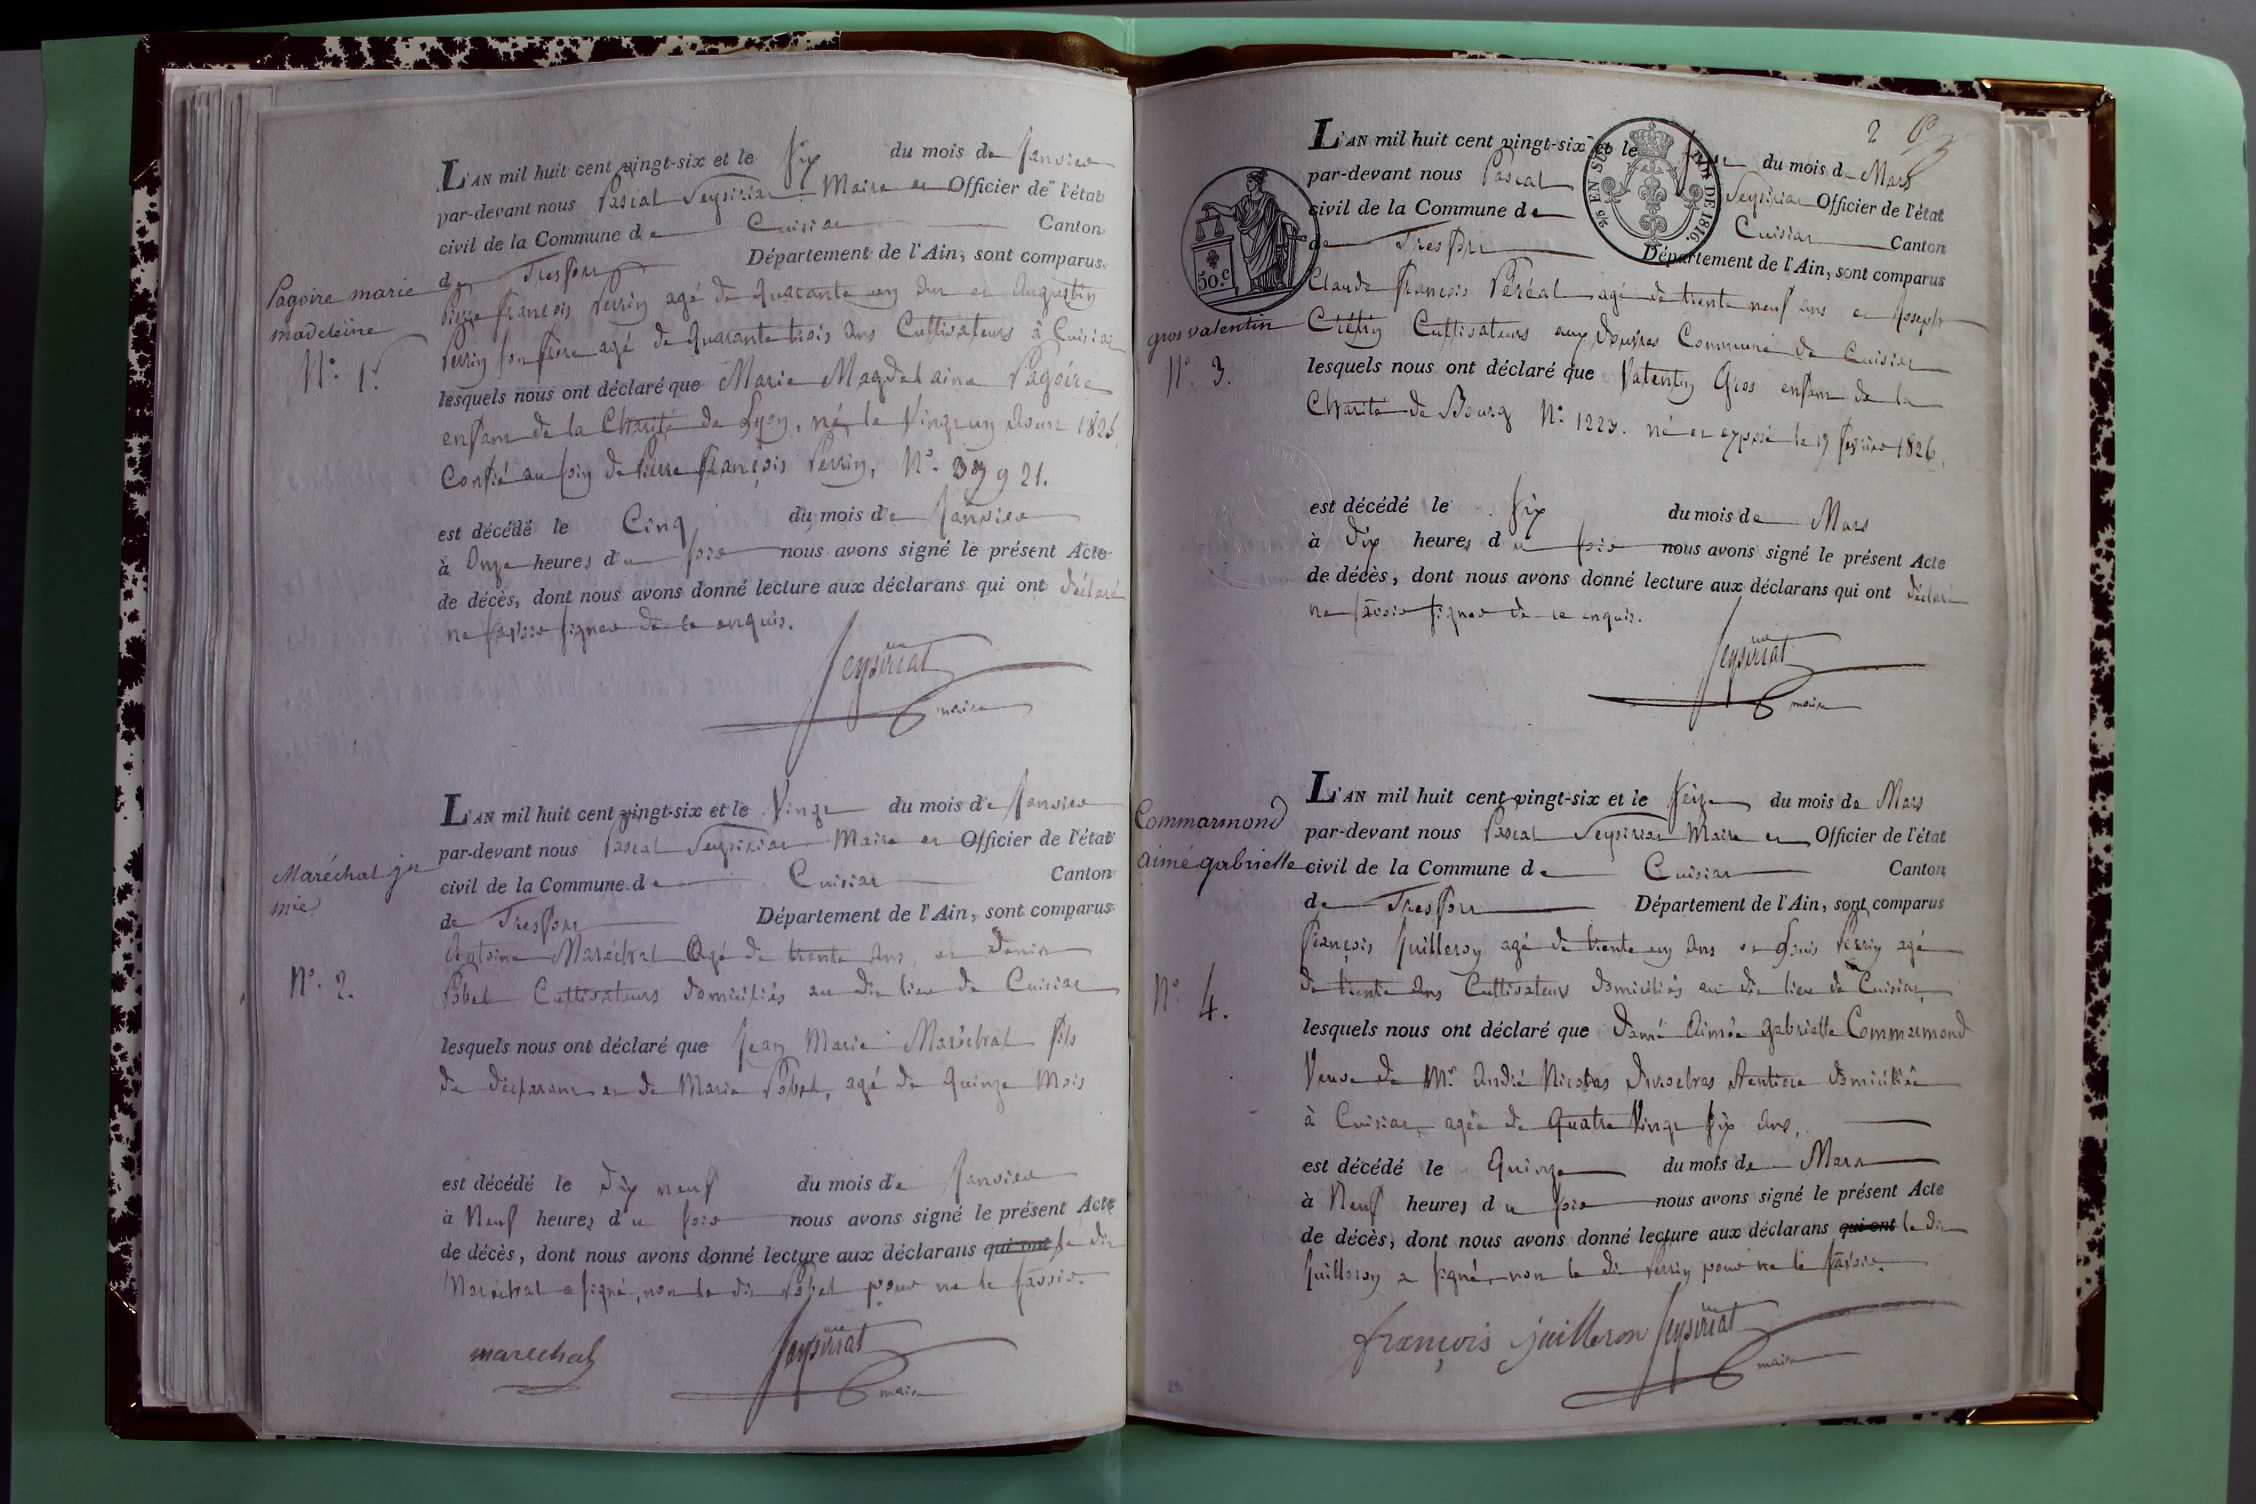 L'AN mil huit cent vingt-six et le six du mois de Janvier
par-devant nous Pascal Seysiriat Maire et Officier de l'état
civil de la Commune de Cuisiat Canton
de Treffort Département de l'Ain, sont comparus
Pagoire marie
madeleine
N°. 1.
Pierre François Perrin agé de quarante un ans et Augustin
Perrin son frere agé de quarante trois ans Cultivateurs à Cuisiat
lesquels nous ont déclaré que Marie Magdelaine Pagoire
enfant de la Charité de Lyon, né le Vingt un Aout 1825
Confié au soin de Pierre François Perrin, N°.
est décédé le Cinq du mois de Janvier
à Onze heures du soir nous avons signé le présent Acte
de décès, dont nous avons donné lecture aux déclarans qui ont déclaré
ne savoir signer de ce enquis.
Seysiriat
maire
L'AN mil huit cent vingt-six et le Vingt du mois de Janvier
par-devant nous Pascal Seysiriat Maire et Officier de l'état
civil de la Commune de Cuisiat Canton
de Treffort Département de l'Ain, sont comparus
Maréchal jn
mie
N°. 2.
Antoine Maréchal Agé de trente ans, et Denis
Pobel Cultivateurs domiciliés au dit lieu de Cuisiat
lesquels nous ont déclaré que Jean Marie Maréchal fils
du déclarant et de Marie Pobel, agé de quinze mois
est décédé le dix neuf du mois de Janvier
à Neuf heures du soir nous avons signé le présent Acte
de décès, dont nous avons donné lecture aux déclarans qui ont le dit
Maréchal a signé, non le dit Pobel pour ne le savoir.
marechal Seysiriat
maire
2
L'AN mil huit cent vingt-six et le du mois de Mars
par-devant nous Pascal Seysiriat Officier de l'état
civil de la Commune de Cuisiat Canton
de Treffort Département de l'Ain, sont comparus
EN SUS
LOI DE 1816.
50.c
gros valentin
N°. 3.
Claude François Peréal agé de trente neuf ans et Joseph
Crétin Cultivateurs aux Douvres Commune de Cuisiat
lesquels nous ont déclaré que Valentin Gros enfant de la
Charité de Bourg N°. 1223. né et exposé le 19 fevrier 1826.
est décédé le six du mois de Mars
à dix heures du soir nous avons signé le présent Acte
de décès, dont nous avons donné lecture aux déclarans qui ont déclaré
ne savoir signer de ce enquis.
Seysiriat
maire
L'AN mil huit cent vingt-six et le seize du mois de Mars
par-devant nous Pascal Seysiriat Maire et Officier de l'état
civil de la Commune de Cuisiat Canton
de Treffort Département de l'Ain, sont comparus
Commarmond
aimé gabrielle
N° 4.
François Guilleroy agé de trente un ans et Louis Perrin agé
de trente ans Cultivateurs domiciliés au dit lieu de Cuisiat
lesquels nous ont déclaré que Dame Aimée gabrielle Commarmond
Veuve de Mr. André Nicolas Rentiere domiciliée
à Cuisiat, agée de quatre Vingt six ans,
est décédé le Quinze du mois de Mars
à Neuf heures du soir nous avons signé le présent Acte
de décès, dont nous avons donné lecture aux déclarans qui ont le dit
Guilleroy a signé, non le dit Perrin pour ne le savoir.
françois Juilleron Seysiriat
maire